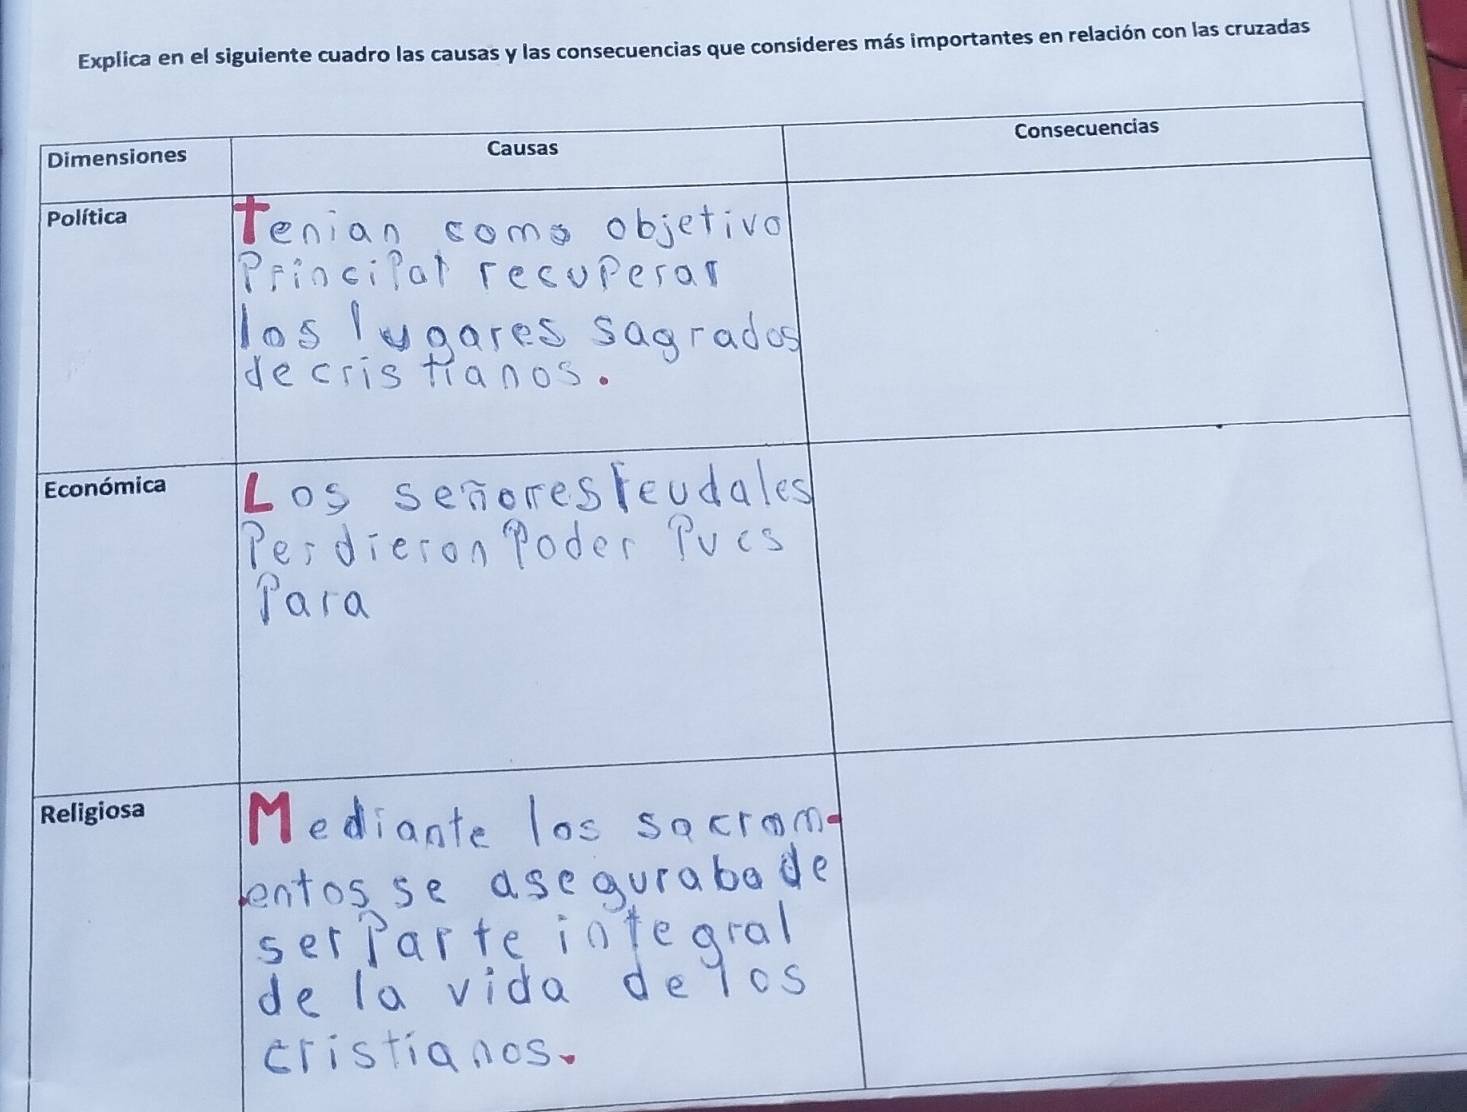 Explica en el siguiente cuadro las causas y las consecuencias que consideres más importantes en relación con las cruzadas
Dimensiones
Causas
Consecuencias
Política
Tenian como objetivo
Principal recuperar
los lugares sagrados
de cristianos.
Económica
Los señores feudales
Perdieron Poder Pues
Para
Religiosa
Mediante los sacram-
entos se aseguraba de
ser Parte integral
de la vida de los
cristianos.